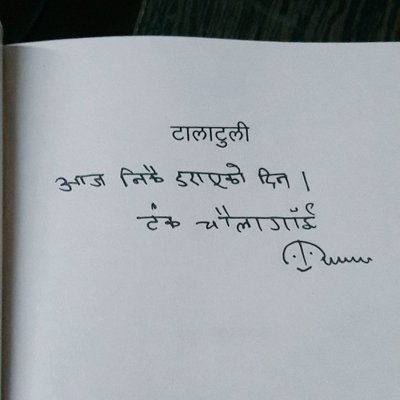 टालाटुली
आज निकै डराएको दिन ।
टंक चौलागाँई